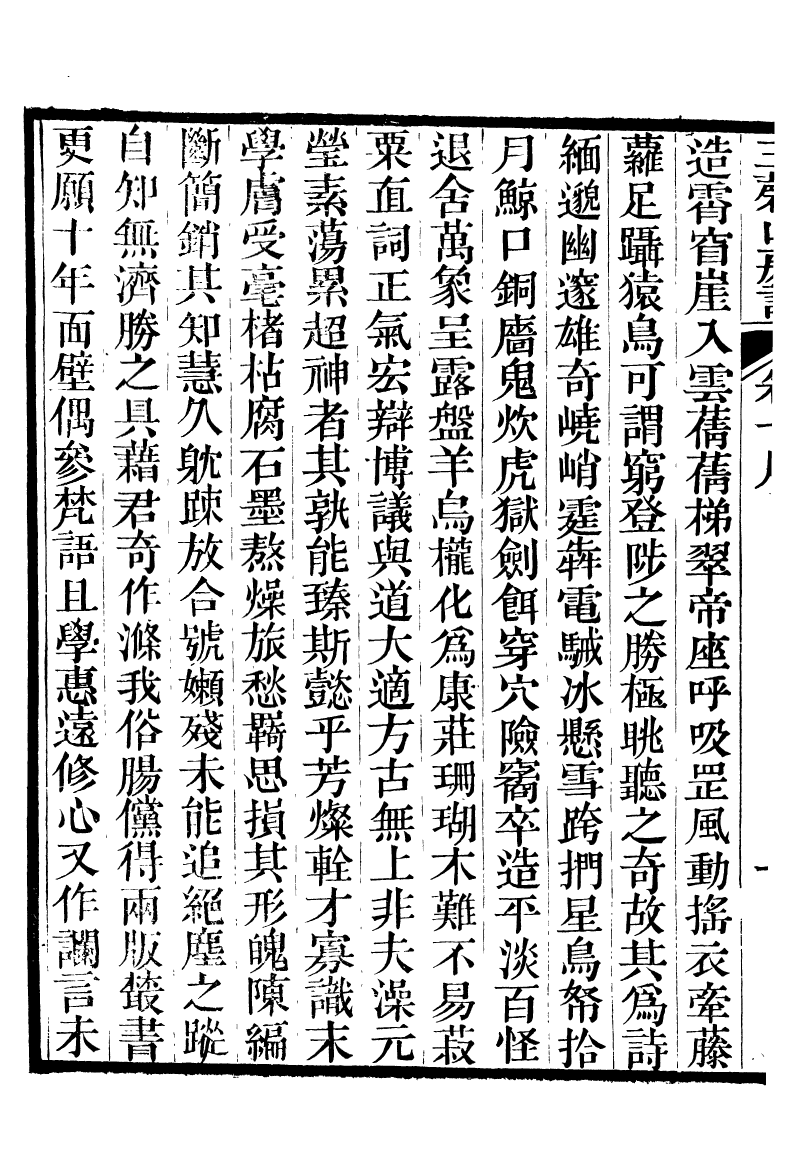 造霄窅崖入雲蒨蒨梯翠帝座呼吸罡風動搖衣牽藤
蘿足躡猿鳥可謂窮登陟之勝極眺聽之奇故其為詩
緬邈幽邃雄奇嶢峭霆犇電駴冰懸雪跨捫星鳥帑拾
月鯨口銅廧鬼炊虎獄劍餌穿穴險窩卒造平淡百怪
退舍萬象呈露盤羊烏櫳化為康莊珊瑚木難不易菽
粟直詞正氣宏辯博議與道大適方古無上非夫澡元
瑩素蕩累超神者其孰能臻斯懿乎芳燦輇才寡識末
學膚受毫楮枯腐石墨熬燥旅愁羇思損其形魄陳編
斷簡銷其知慧久躭踈放合號嬾殘未能追絕塵之蹤
自知無濟勝之具藉君奇作滌我俗腸儻得兩版叢書
更願十年面壁偶參梵語且學惠遠修心又作讕言未